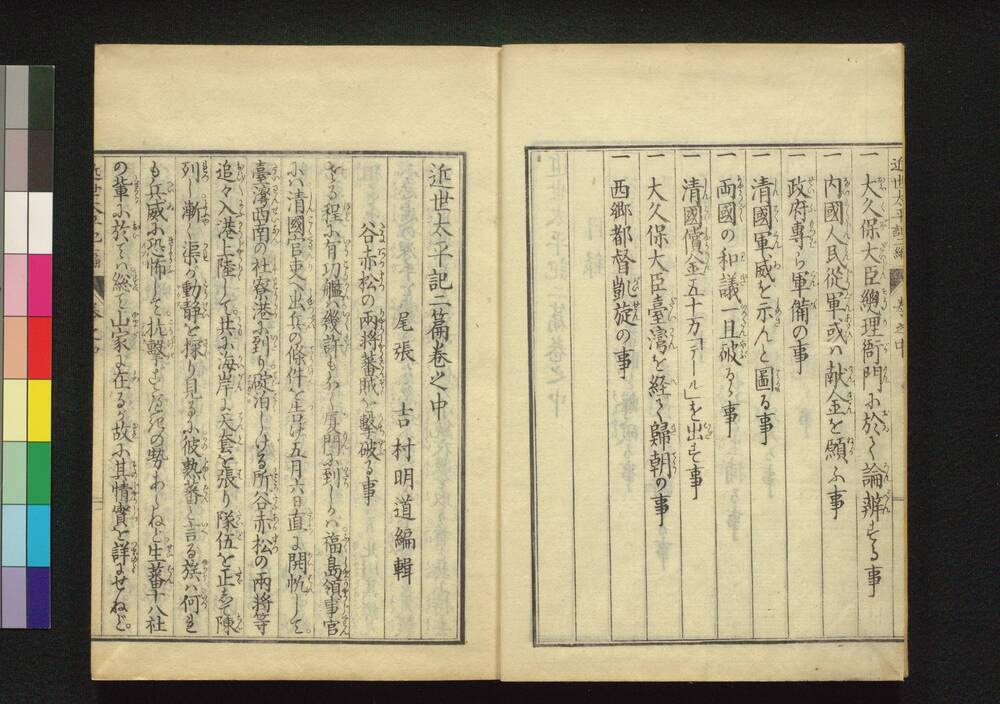 近世太平記二編 巻之中
一 大久保大臣總理衙門に於て論辨する事
一 内國人民從軍或ハ献金を願ふ事
一 政府専ら軍備の事
一 清國軍威を示んと圖る事
一 両國の和議一旦破るゝ事
一 清國償金五十万「テール」を出す事
一 大久保大臣臺灣を経て歸朝の事
一 西郷都督凱旋の事
近世太平記二篇巻之中
尾張 吉村明道編輯
谷赤松の両将蕃賊を撃破る事
さる程に有功艦ハ幾許もなく厦門に到しかハ福島領事官
にハ清國官吏へ出兵の條件を告げ五月六日直に開帆して
臺灣西南の社寮港に到り碇泊しける所谷赤松の両将等
追々入港上陸して共に海岸に天套を張り隊伍を正して陳
列し漸く渠が動静を探り見るに彼熟蕃と言る族ハ何れ
も兵威に恐怖して抗撃すべきの勢あらねど生蕃十八社
の輩に於てハ総て山家に在るが故に其情實を詳にせねど。